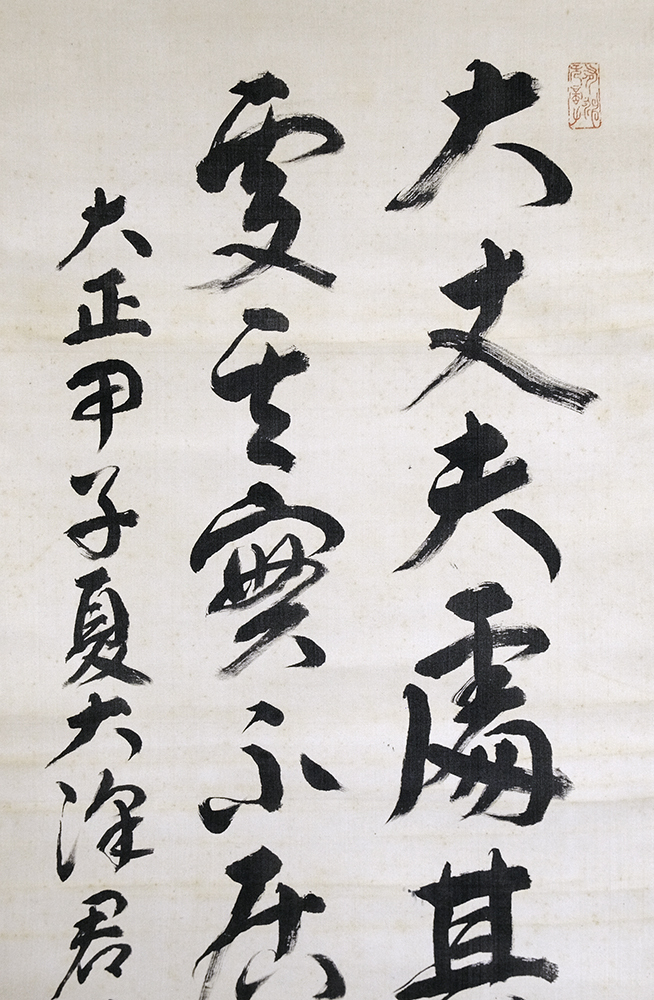 大丈夫處其
處其實不居
大正甲子夏大深君